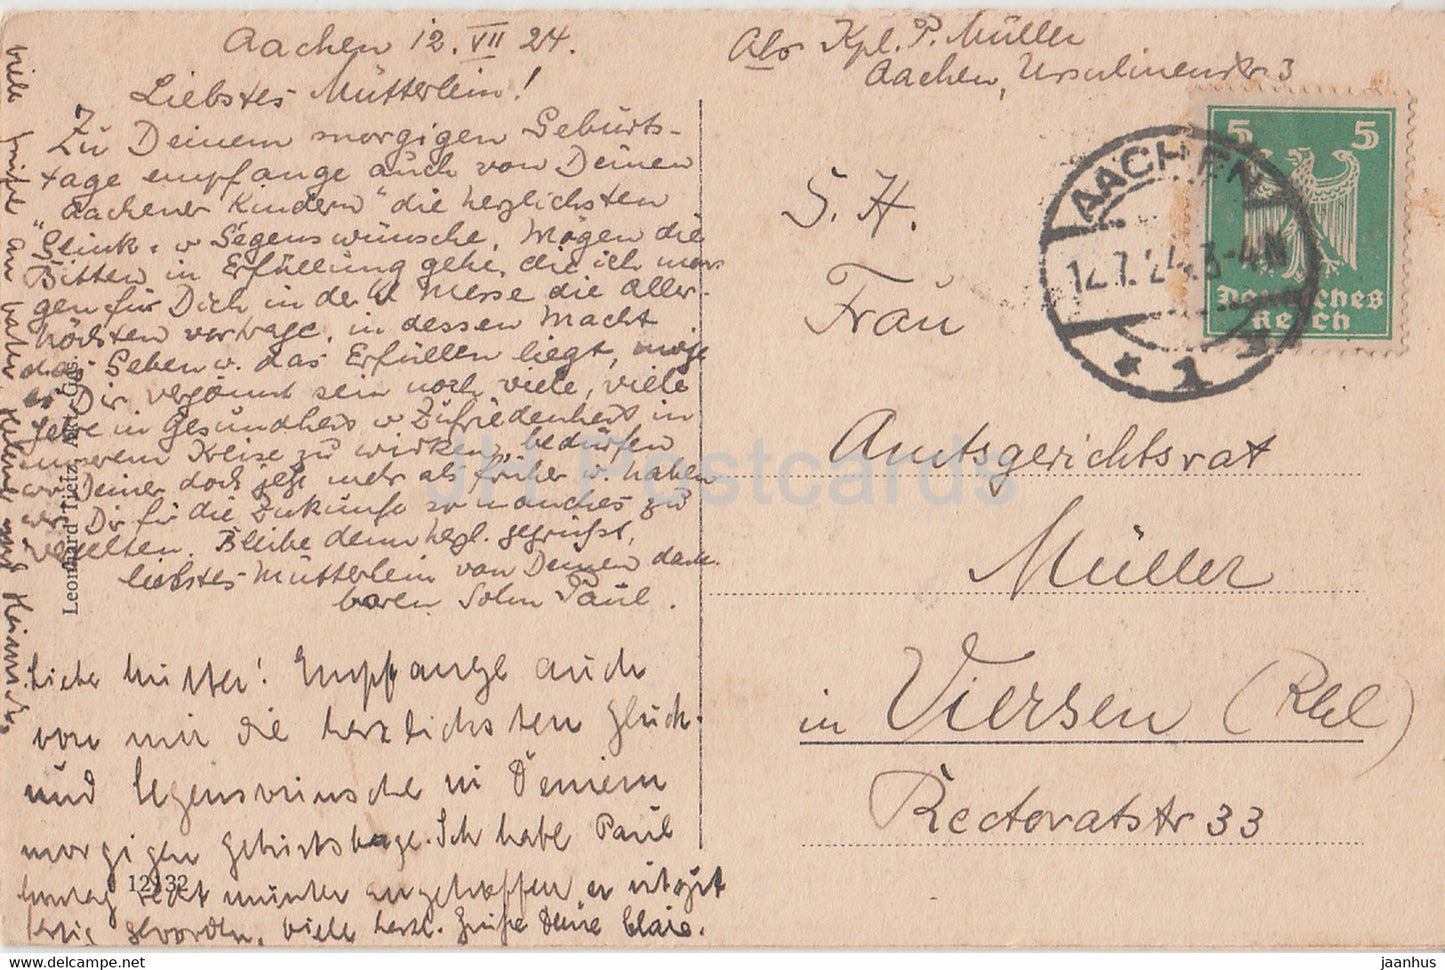 Aachen 12. VII 24.
Liebstes Mütterlein!
Zu Deinem morgigen Geburts-
tage empfange auch von Deinen
"Aachener Kindern" die herzlichsten
Glück- u Segenswünsche. Mögen die
Bitten in Erfüllung gehn, die ich mor-
gen für Dich in der hl Messe die aller-
höchsten vortrage, in dessen Macht
das Geben u. das Erfüllen liegt, möge
es Dir vergönnt sein noch viele, viele
Jahre in Gesundheit u Zufriedenheit in
unserem Kreise zu wirken, bedürfen
wir Deiner doch jetzt mehr als früher u. haben
wir Dir für die Zukunft so manches zu
vergelten. Bleibe denn herzl. gegrüßt,
liebstes Mütterlein von Deinem dank-
baren Sohn Paul.
Liebe Mutter! Empfange auch
von mir die herzlichsten Glück-
und Segenswünsche zu Deinem
morgigen Geburtstage. Ich habe Paul
Sonntag recht munter angetroffen er ist gut
fertig geworden, viele herzl. Grüße Deine
viele Grüße an Vater, Helene und Heinrich.
Leonhard Tietz, Akt.-Ges.
12132
Abs Kpl. P. Müller
Aachen, Ursulinenstr 3
5 5
Deutsches
Reich
AACHEN
12.7.24.3-4N
* 1
S. H.
Frau
Amtsgerichtsrat
Müller
in Viersen (Rhl)
Rectoratstr 33
JH Postcards
jaanhus